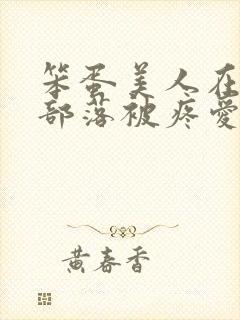 笨蛋美人在
部落被疼爱
黄春香